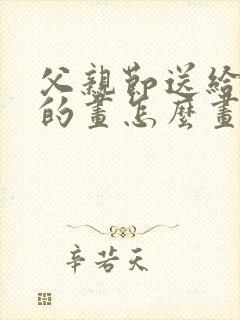 父親節送給
的畫怎麼畫
辛若天